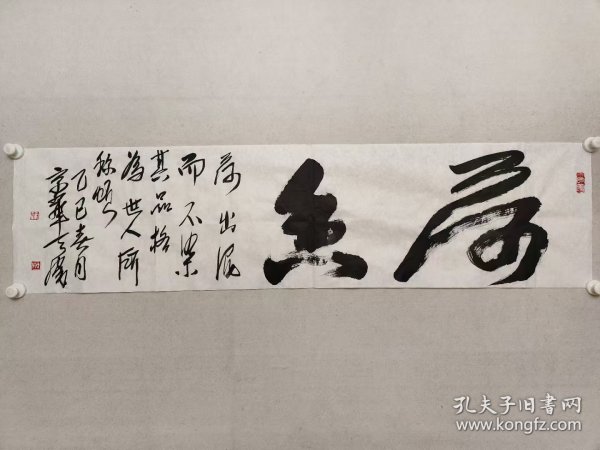 荷香
荷出泥
而不染
其品格
為世人所
称颂
乙巳春月
京華
孔夫子旧书网
www.kongfz.com